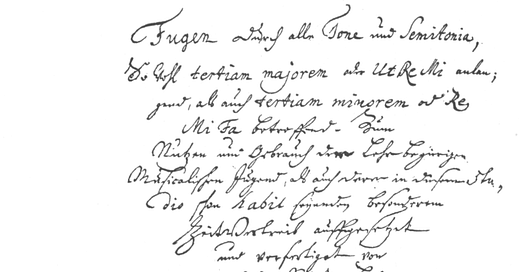 Fugen durch alle Tone und Semitonia,
So wohl tertiam majorem oder Ut Re Mi anlan;
gend, als auch tertiam minorem od Re
Mi Fa betreffend. Zum
Nutzen und Gebrauch der Lehrbegierigen
Musicalischen Jugend, als auch derer in diesem stu,
dio schon habil seyenden besonderem
Zeitvertreib auffgesetzet
und verfertiget von